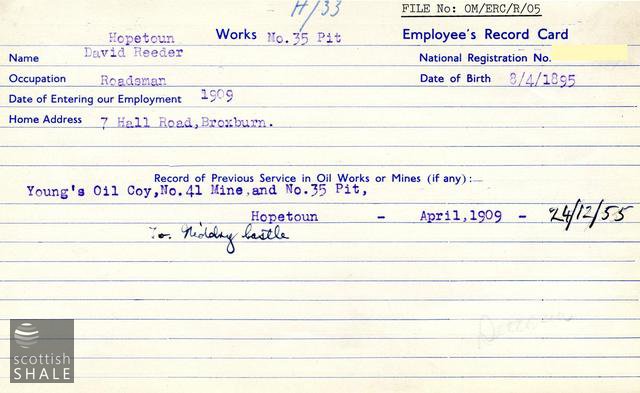 H/33
FILE No: OM/ERC/R/05
Hopetoun Works No.35 Pit Employee's Record Card
Name David Reeder National Registration No.
Occupation Roadsman Date of Birth 8/4/1895
Date of Entering our Employment 1909
Home Address 7 Hall Road,Broxburn.
Record of Previous Service in Oil Works or Mines (if any):—
Young's Oil Coy,No.41 Mine,and No.35 Pit,
Hopetoun - April,1909 - 24/12/55
To. Niddry Castle
scottish
SHALE